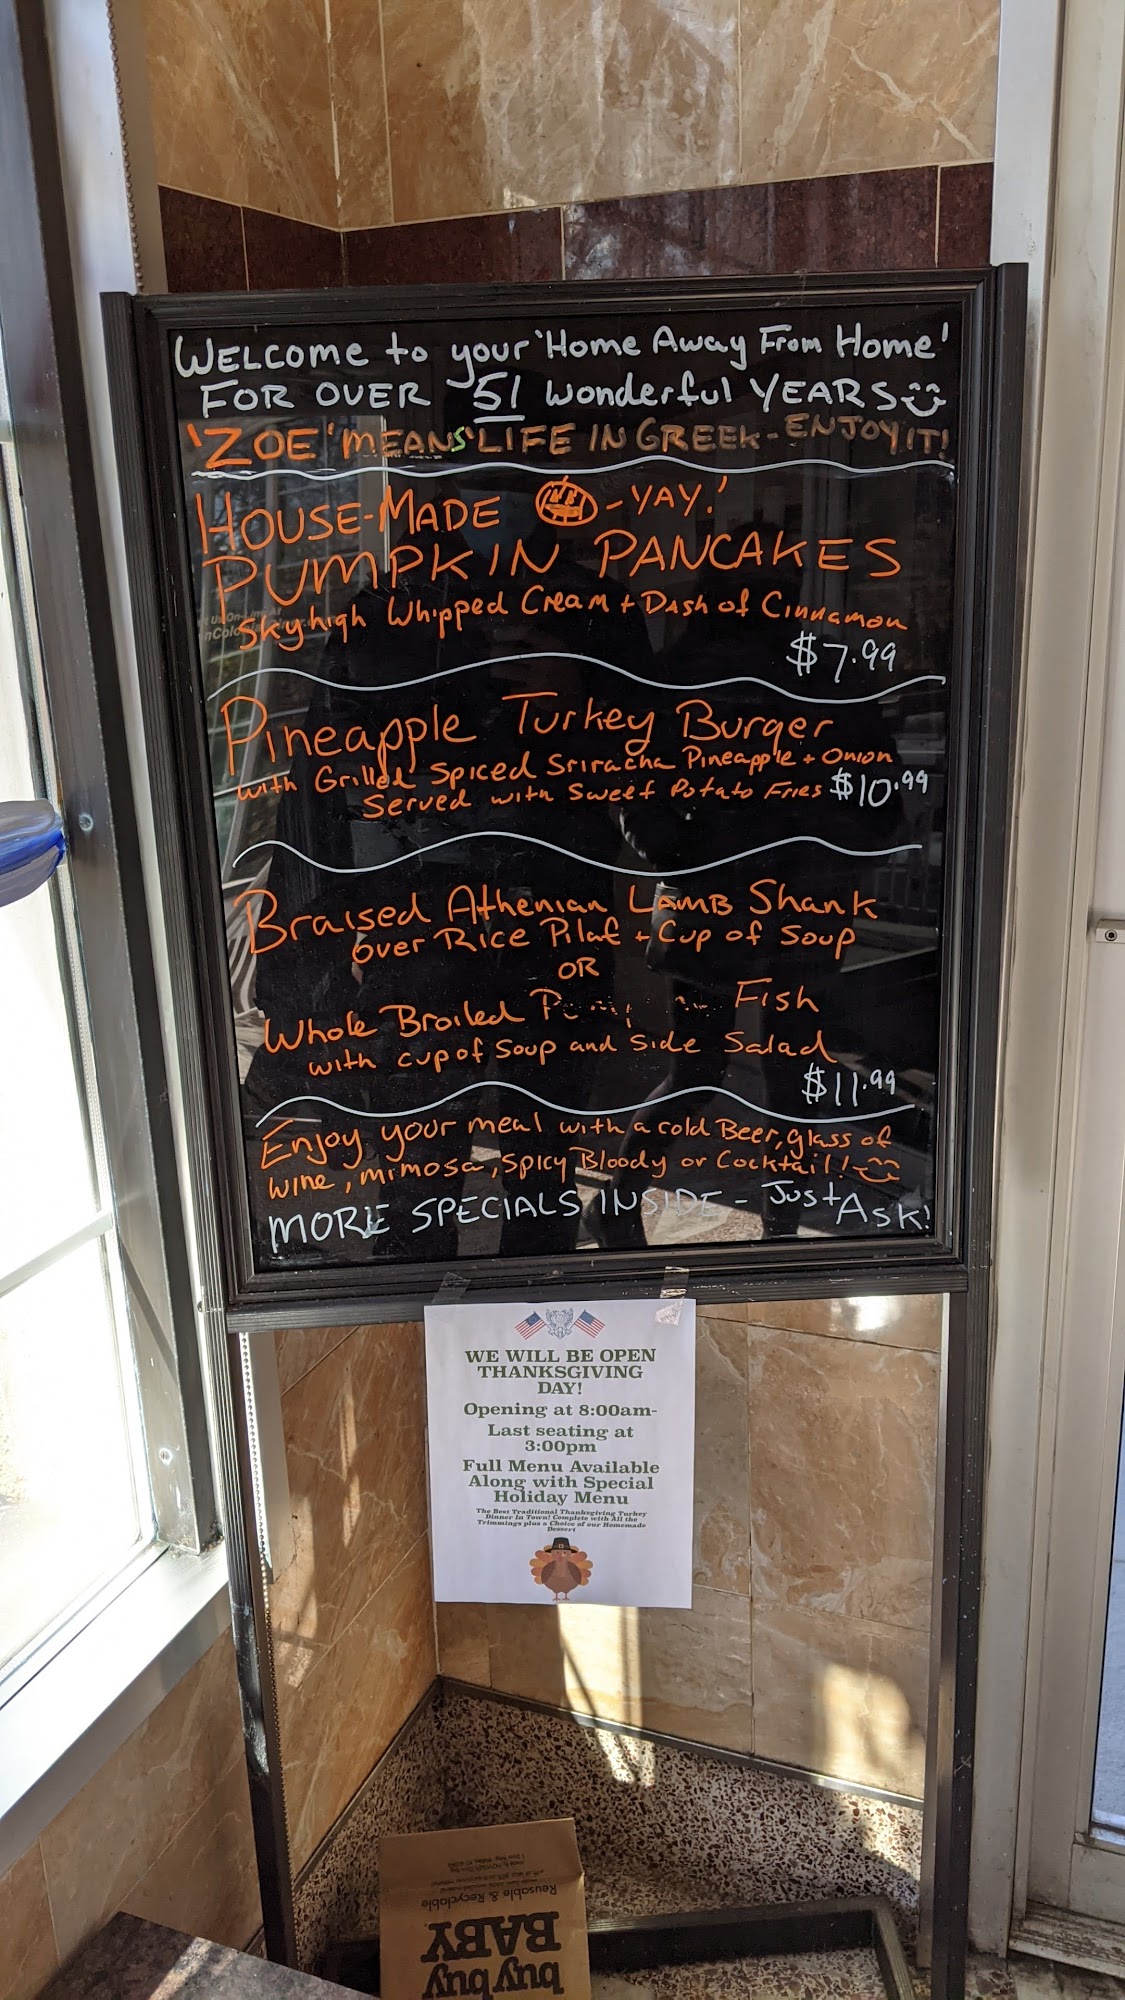 WELCOME to your 'Home Away From Home'
FOR OVER 51 wonderful YEARS
'ZOE' MEANS 'LIFE IN GREEK - ENJOY IT!
HOUSE-MADE - YAY!
PUMPKIN PANCAKES
Skyhigh Whipped Cream + Dash of Cinnamon
$7.99
Pineapple Turkey Burger
with Grilled Spiced Sriracha Pineapple + Onion
Served with Sweet Potato Fries $10.99
Braised Athenian LAMB Shank
over Rice Pilaf + Cup of Soup
OR
Whole Broiled Fish
with cup of Soup and Side Salad
$11.99
Enjoy your meal with a cold Beer, glass of
wine, mimosa, spicy Bloody or Cocktail!
MORE SPECIALS INSIDE - Just Ask!
WE WILL BE OPEN
THANKSGIVING
DAY!
Opening at 8:00am-
Last seating at
3:00pm
Full Menu Available
Along with Special
Holiday Menu
The Best Traditional Thanksgiving Turkey
Dinner In Town! Complete with All the
Trimmings plus a Choice of our Homemade
Dessert
buy buy
BABY
Reusable & Recyclable